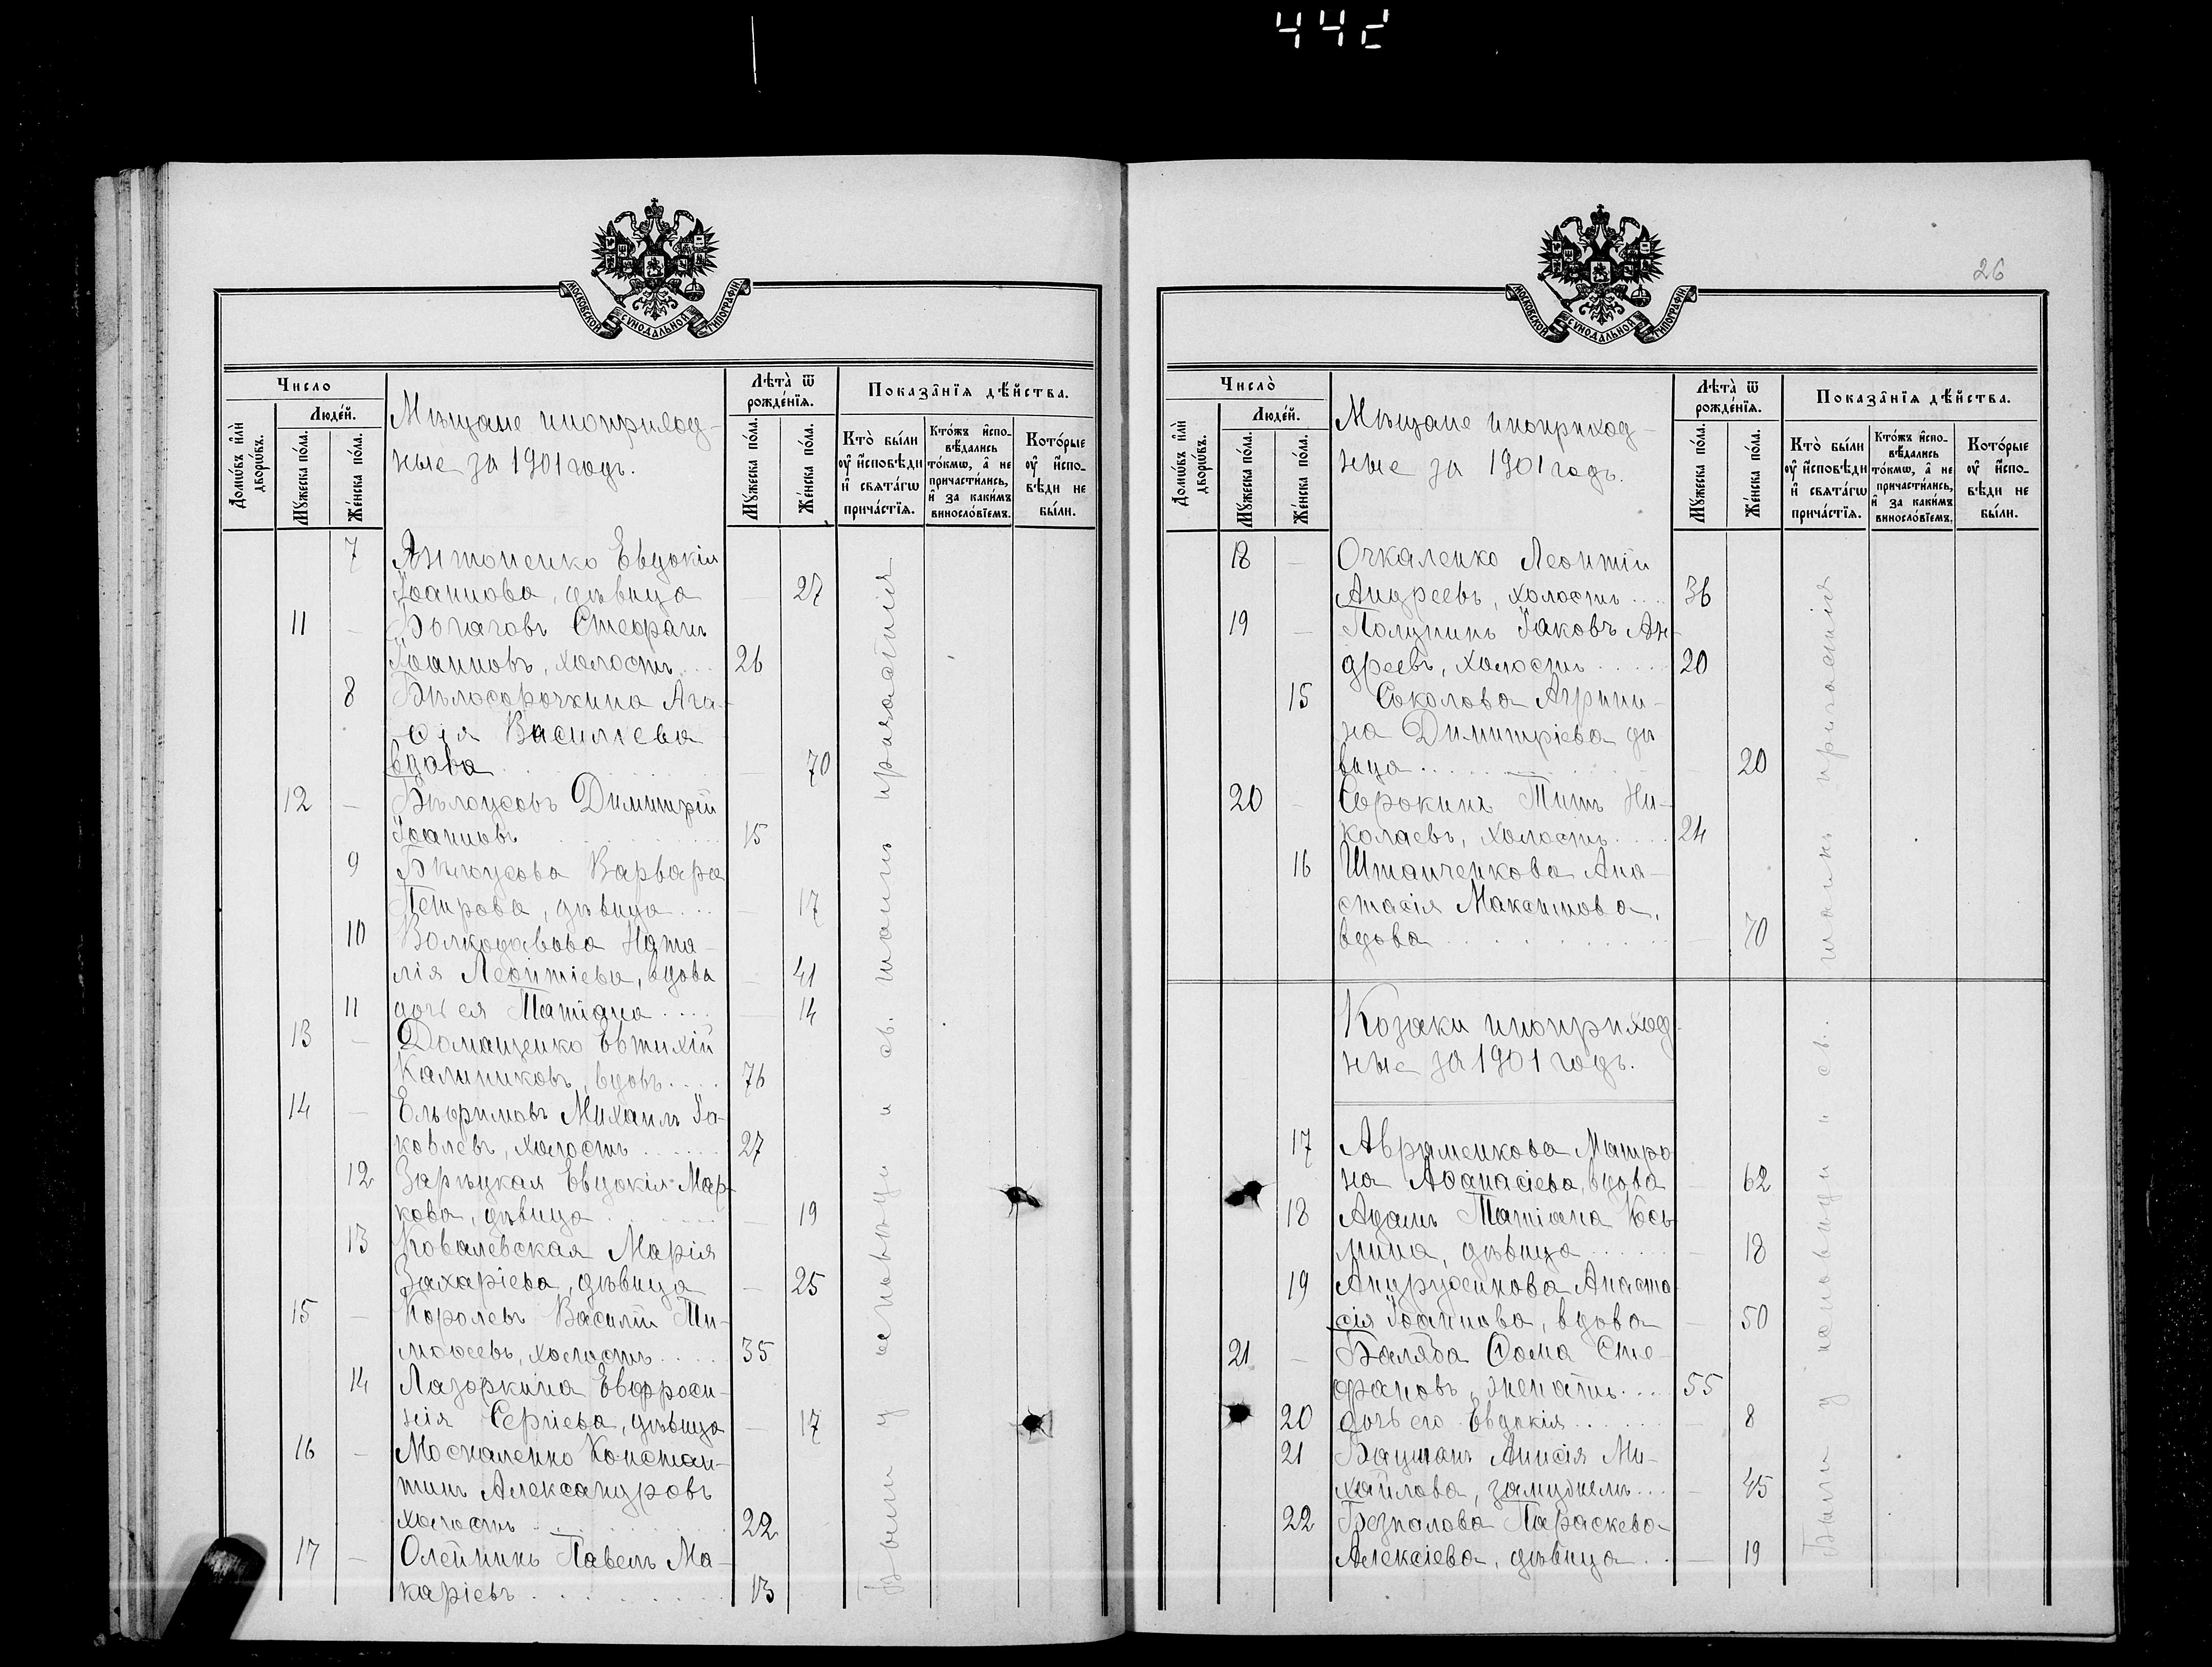 442
МОСКОВСКОЙ СѴНОДАЛЬНОЙ ТИПОГРАФІИ
Число
Людей.
Домѡвъ или дворѡвъ.
Мужеска пола.
Женска пола.
Мѣщане иноприход-
ные за 1901 годъ.
Лѣта ѿ рожденїя.
Мужеска пола.
Женска пола.
Показанїя дѣйства.
Кто были оу исповѣди и свѧтагѡ причастїя.
Ктожъ исповѣдались токмѡ, а не причастились, и за какимъ винословїемъ.
Которые оу исповѣди не были.
7 Антоненко Евдокія
Іоаннова, дѣвица — 27
11 — Богачовъ Стефанъ
Іоанновъ, холостъ... 26
8 Бѣлосорочкина Ага-
ѳія Васильева
вдова — 70
12 — Бѣлоусовъ Димитрій
Іоанновъ 15
9 Бѣлоусова Варвара
Петрова, дѣвица... — 17
10 Волкодавова Ната-
лія Леонтіева, вдова — 41
11 дочь ея Татіана.... — 14
13 — Доманценко Евтихій
Калиниковъ, вдовъ.... 76
14 — Ельфимовъ Михаилъ Іа-
ковлевъ, холостъ...... 27
12 Зарѣцкая Евдокія Мар-
кова, дѣвица — 19
13 Ковалевская Марія
Захаріева, дѣвица — 25
15 — Королевъ Василій Ти-
моѳеевъ, холостъ..... 35
14 Лазоркина Евфроси-
нія Сергіева, дѣвица — 17
16 — Москаленко Констан-
тинъ Александровъ
холостъ 22
17 — Олейникъ Павелъ Ма-
каріевъ 13
Были у исповѣди и св. таинъ причастія
26
МОСКОВСКОЙ СѴНОДАЛЬНОЙ ТИПОГРАФІИ
Число
Людей.
Домѡвъ или дворѡвъ.
Мужеска пола.
Женска пола.
Мѣщане иноприход-
ные за 1901 годъ.
Лѣта ѿ рожденїя.
Мужеска пола.
Женска пола.
Показанїя дѣйства.
Кто были оу исповѣди и свѧтагѡ причастїя.
Ктожъ исповѣдались токмѡ, а не причастились, и за какимъ винословїемъ.
Которые оу исповѣди не были.
18 — Очкаленко Леонтій
Андреевъ, холостъ.... 36
19 — Полунинъ Іаковъ Ан-
дреевъ, холостъ...... 20
15 Соколова Агрипи-
на Димитріева дѣ
вица — 20
20 — Сорокинъ Титъ Ни-
колаевъ, холостъ.... 24
16 Штанченкова Ана-
стасія Максимова,
вдова — 70
Козаки иноприход-
ные за 1901 годъ.
17 Авраменкова Матро
на Аѳанасіева, вдова — 62
18 Адамъ Татіана Кось
мина, дѣвица...... — 18
19 Андрусикова Анаста
сія Іоаннова, вдова — 50
21 — Баляба Ѳома Сте-
фановъ, женатъ.... 55
20 дочь его Евдокія...... — 8
21 Бацманъ Анисія Ми-
хайлова, замужемъ... — 45
22 Безпалова Параскева
Алексіева, дѣвица .. — 19
Были у исповѣди и св. таинъ причастія